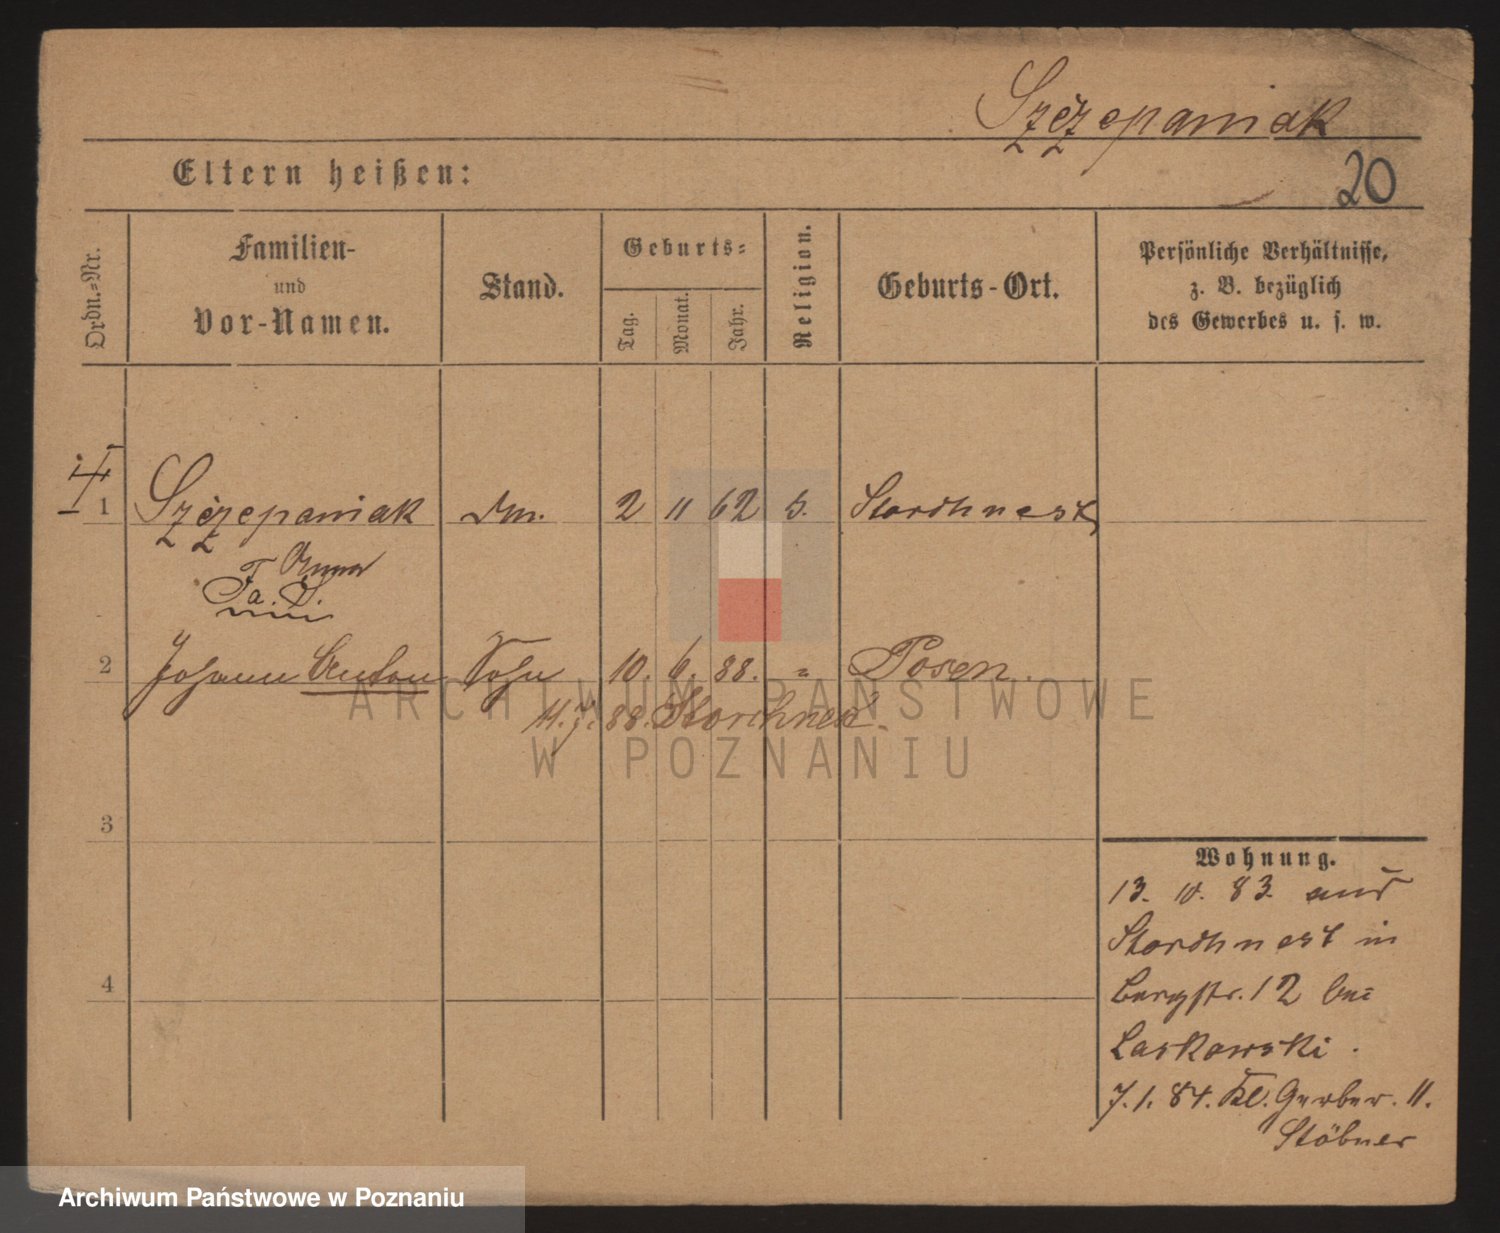 Szczepaniak
Eltern heißen:
20
Ordn.=Nr.
Familien-
und
Vor-Namen.
Stand.
Geburts=
Tag.
Monat.
Jahr.
Religion.
Geburts-Ort.
Persönliche Verhältnisse,
z. B. bezüglich
des Gewerbes u. s. w.
1 Szczepaniak 2 11 62 Storchnest
Anna
2 Johann Anton Sohn 10. 6. 88. " Posen.
11. 7. 88. Storchnest.
ARCHIWUM PAŃSTWOWE
W POZNANIU
3
4
Wohnung.
13. 10. 83. aus
Storchnest in
Bergstr. 12 bei
Laskowski.
7. 1. 84. Kl. Gerber. 11.
Stöbner
Archiwum Państwowe w Poznaniu